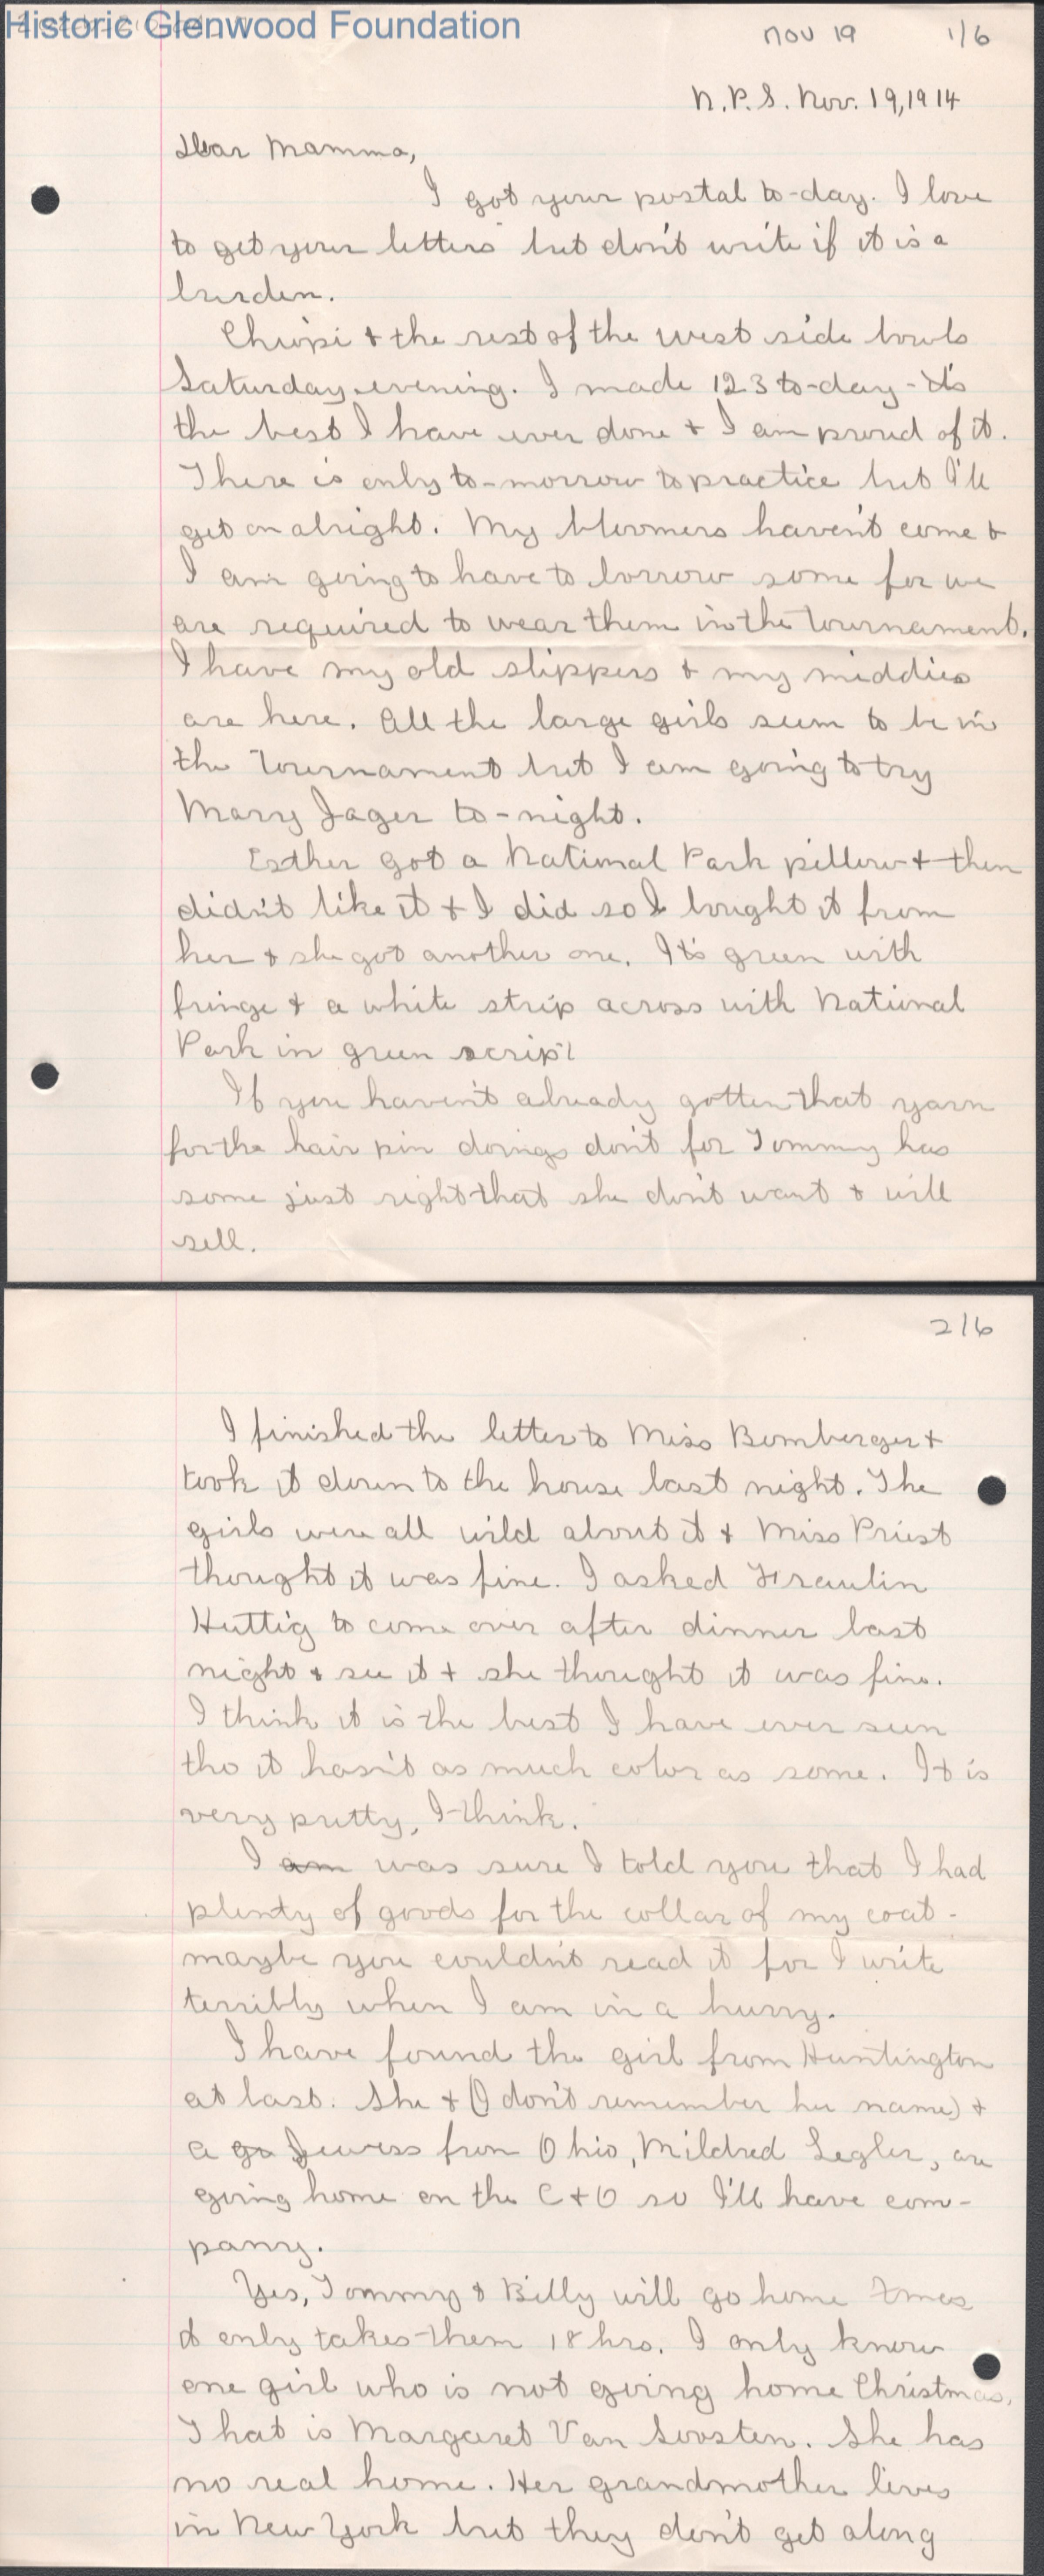 Historic Glenwood Foundation
Nov 19 1/6
N.P.S. Nov. 19, 1914
Dear Mamma,
I got your postal to-day. I love
to get your letters but don't write if it is a
burden.
Chiopi & the rest of the west side bowls
Saturday evening. I made 123 to-day - It's
the best I have ever done & I am proud of it.
There is only to-morrow to practice but I'll
get on alright. My bloomers haven't come &
I am going to have to borrow some for we
are required to wear them in the tournament.
I have my old slippers & my middies
are here. All the large girls seem to be in
the tournament but I am going to try
Mary Jager to-night.
Esther got a National Park pillow & then
didn't like it & I did so I bought it from
her & she got another one. It's green with
fringe & a white strip across with National
Park in green script
If you haven't already gotten that yarn
for the hair pin doings don't for Tommy has
some just right that she don't want & will
sell.
2/6
I finished the letter to Miss Bomberger &
took it down to the house last night. The
girls were all wild about it & Miss Priest
thought it was fine. I asked Fraulin
Huttig to come over after dinner last
night & see it & she thought it was fine.
I think it is the best I have ever seen
tho it hasn't as much color as some. It is
very pretty, I think.
I am was sure I told you that I had
plenty of goods for the collar of my coat -
maybe you couldn't read it for I write
terribly when I am in a hurry.
I have found the girl from Huntington
at last. She & (I don't remember her name) &
a go Jewess from Ohio, Mildred Segler, are
going home on the C & O so I'll have com-
pany.
Yes, Tommy & Billy will go home Xmas
it only takes them 18 hrs. I only know
one girl who is not going home Christmas.
That is Margaret Van Soosten. She has
no real home. Her grandmother lives
in New York but they don't get along